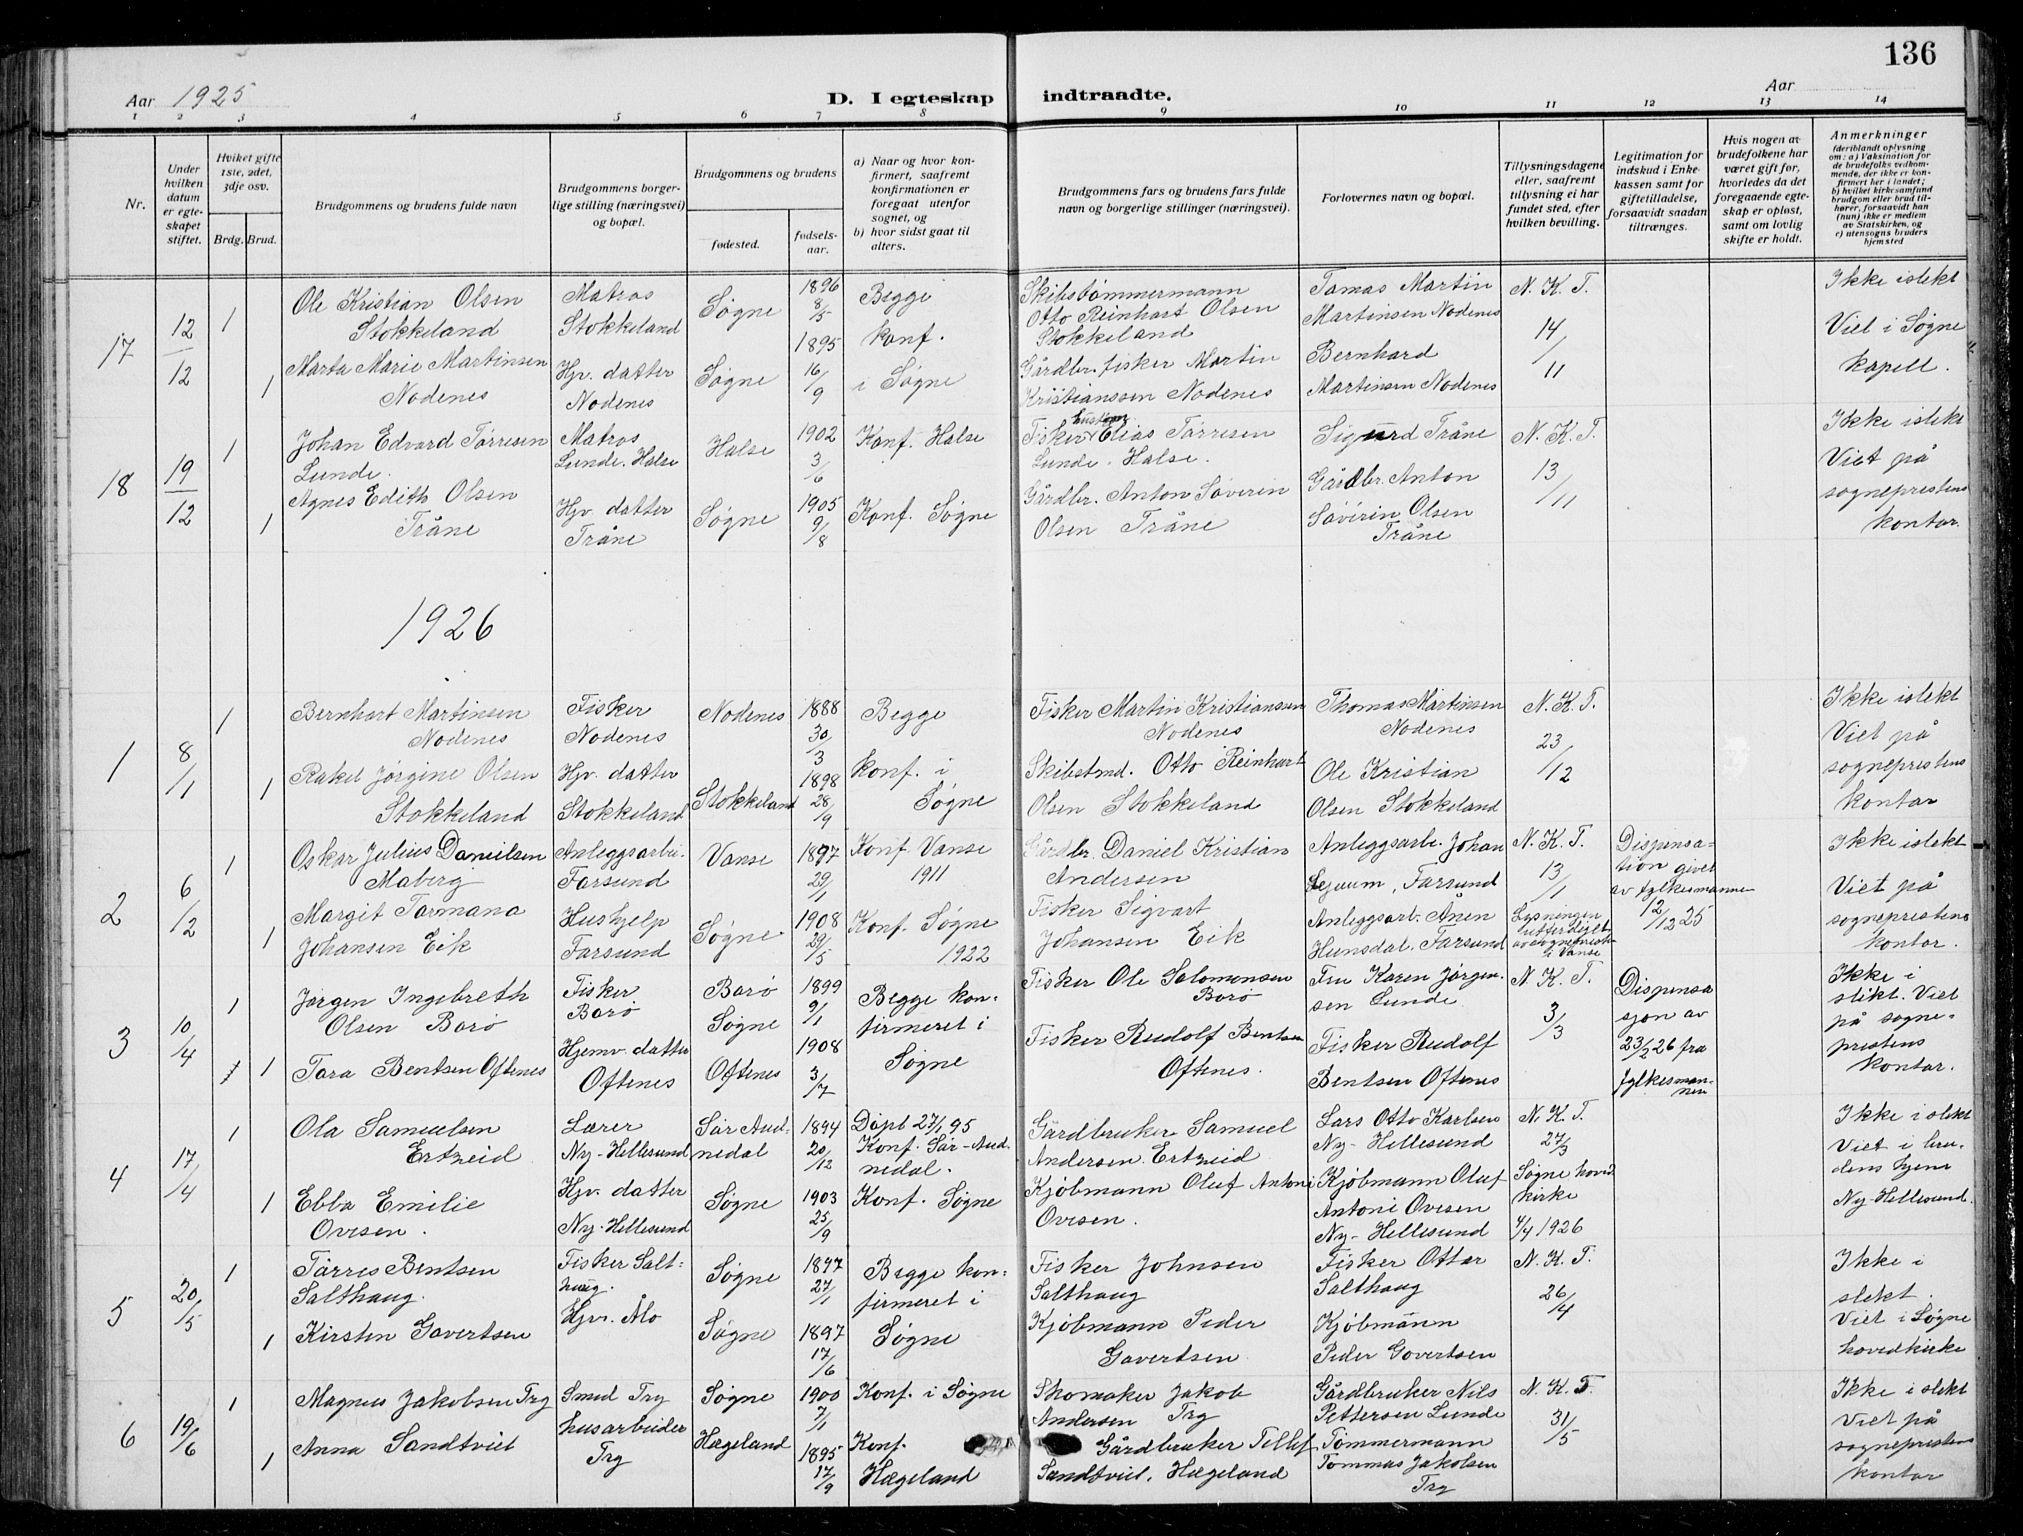 136
Aar 1925
D. I egteskap indtraadte.
Aar
1 2 3 4 5 6 7 8 9 10 11 12 13 14
Nr.
Under hvilken datum er egteskapet stiftet.
Hvilket gifte 1ste, 2det, 3dje osv.
Brdg. Brud.
Brudgommens og brudens fulde navn
Brudgommens borgerlige stilling (næringsvei) og bopæl.
Brudgommens og brudens
fødested.
fødselsaar.
a) Naar og hvor konfirmert, saafremt konfirmationen er foregaat utenfor sognet, og
b) hvor sidst gaat til alters.
Brudgommens fars og brudens fars fulde navn og borgerlige stillinger (næringsvei).
Forlovernes navn og bopæl.
Tillysningsdagene eller, saafremt tillysning ei har fundet sted, efter hvilken bevilling.
Legitimation for indskud i Enkekassen samt for giftetilladelse, forsaavidt saadan tiltrænges.
Hvis nogen av brudefolkene har været gift før, hvorledes da det foregaaende egteskap er opløst, samt om lovlig skifte er holdt.
Anmerkninger (deriblandt oplysning om: a) Vaksination for de brudefolks vedkommende, der ikke er konfirmert her i landet; b) hvilket kirkesamfund brudgom eller brud tilhører, forsaavidt han (hun) ikke er medlem av Statskirken, og c) utensogns bruders hjemsted
17
12/12
1
Ole Kristian Olsen
Stokkeland
Matros
Stokkeland
Søgne
1896
8/5
Begge
konf.
i Søgne
Skibstømmermann
Otto Reinhart Olsen
Stokkeland
Tomas Martin
Martinsen Nodenes
N. K. T.
14/11
Ikke i slekt
Viet i Søgne
kapell.
1
Marta Marie Martinsen
Nodenes
Hjv. datter
Nodenes
Søgne
1895
16/9
Gårdbr. fisker Martin
Kristianssen Nodenes
Bernhard
Martinsen Nodenes
18
19/12
1
Johan Edvard Tørresen
Lunde.
Matros
Lunde. Halse
Halse
1902
3/6
Konf. Halse
Fisker Elias Tørresen
Lunde. Halse.
Sigurd Tråne
N. K. T.
13/11
Ikke i slekt
Viet på
sogneprestens
kontor.
1
Agnes Edith Olsen
Tråne
Hjv. datter
Tråne
Søgne
1905
9/8
Konf. Søgne
Gårdbr. Anton Søverin
Olsen Tråne
Gårdbr. Anton
Søverin Olsen
Tråne
1926
1
8/1
1
Bernhart Martinsen
Nodenes
Fisker
Nodenes
Nodenes
1888
30/3
Begge
konf. i
Søgne
Fisker Martin Kristianssen
Nodenes
Thomas Martinsen
Nodenes
N. K. T.
23/12
Ikke i slekt
Viet på
sogneprestens
kontor
1
Rakel Jørgine Olsen
Stokkeland
Hjv. datter
Stokkeland
Stokkeland
1898
28/9
Skibstmd. Otto Reinhart
Olsen Stokkeland
Ole Kristian
Olsen Stokkeland
2
6/2
1
Oskar Julius Danielsen
Maberg
Anleggsarbei.
Farsund
Vanse
1897
29/1
Konf. Vanse
1911
Gårdbr. Daniel Kristian
Andersen
Anleggsarbe. Johan
Farsund
N. K. T.
13/1
Lysningen
i Vanse
Dispensa-
tion givet
av fylkesmannen
12/12 25
Ikke i slekt
Viet på
sogneprestens
kontor.
1
Margit Tormana
Johansen Eik
Hushjelp
Farsund
Søgne
1908
29/5
Konf. Søgne
1922
Fisker Sigvart
Johansen Eik
Anleggsarb. Ånen
Hunsdal. Farsund
3
10/4
1
Jørgen Ingebreth
Olsen Borø
Fisker
Borø
Borø
Søgne
1899
9/1
Begge kon-
firmeret i
Søgne
Fisker Ole Salomonsen
Borø
Fru Karen Jørgen-
sen Lunde
N. K. T.
3/3
Dispensa
sjon av
23/2 26 fra
fylkesman-
nen
Ikke i
slekt. Viet
på sogne-
prestens
kontor.
1
Tora Bentsen Oftenes
Hjemv. datter
Oftenes
Oftenes
1908
3/7
Fisker Rudolf Bentsen
Oftenes.
Fisker Rudolf
Bentsen Oftenes
4
17/4
1
Ola Samuelsen
Ertzeid
Lærer
Ny-Hellesund
Sør Aud-
nedal
1894
20/12
Døpt 27/1 95
Konf. Sør-Aud-
nedal.
Gårdbruker Samuel
Andersen. Ertzeid
Lars Otto Karlsen
Ny-Hellesund
N. K. T.
27/3
Søgne hovd
kirke
4/4 1926
Ikke i slekt
Viet i bru-
dens hjem
Ny-Hellesund.
1
Ebba Emilie
Ovesen.
Hjv. datter
Ny-Hellesund
Søgne
1903
25/9
Konf. Søgne
Kjøbmann Oluf Antoni
Ovesen.
Kjøbmann Oluf
Antoni Ovesen
Ny-Hellesund
5
20/5
1
Tørres Bentsen
Salthaug.
Fisker Salt-
haug.
Søgne
1897
27/1
Begge kon-
firmeret i
Søgne
Fisker Johnsen
Salthaug
Fisker Otter
Salthaug
N. K. T.
26/4
Ikke i
slekt.
Viet i Søgne
hovedkirke
1
Kirsten Govertsen
Hjv. Ålo
Søgne
1897
17/6
Kjøbmann Peder
Govertsen
Kjøbmann
Peder Govertsen
6
19/6
1
Magnus Jakobsen Try
Smed Try
Søgne
1900
7/1
Konf. i Søgne
Skomaker Jakob
Andersen Try
Gårdbruker Nils
Pettersen Lunde
N. K. T.
31/5
Ikke i slekt
Viet på
sogneprestens
kontor
1
Anna Sandtveit
husarbeider
Try
Hægeland
1895
17/9
Konf.
Hægeland
Gårdbruker Tellef
Sandtveit. Hægeland
Tømmermann
Tommas Jakobsen
Try